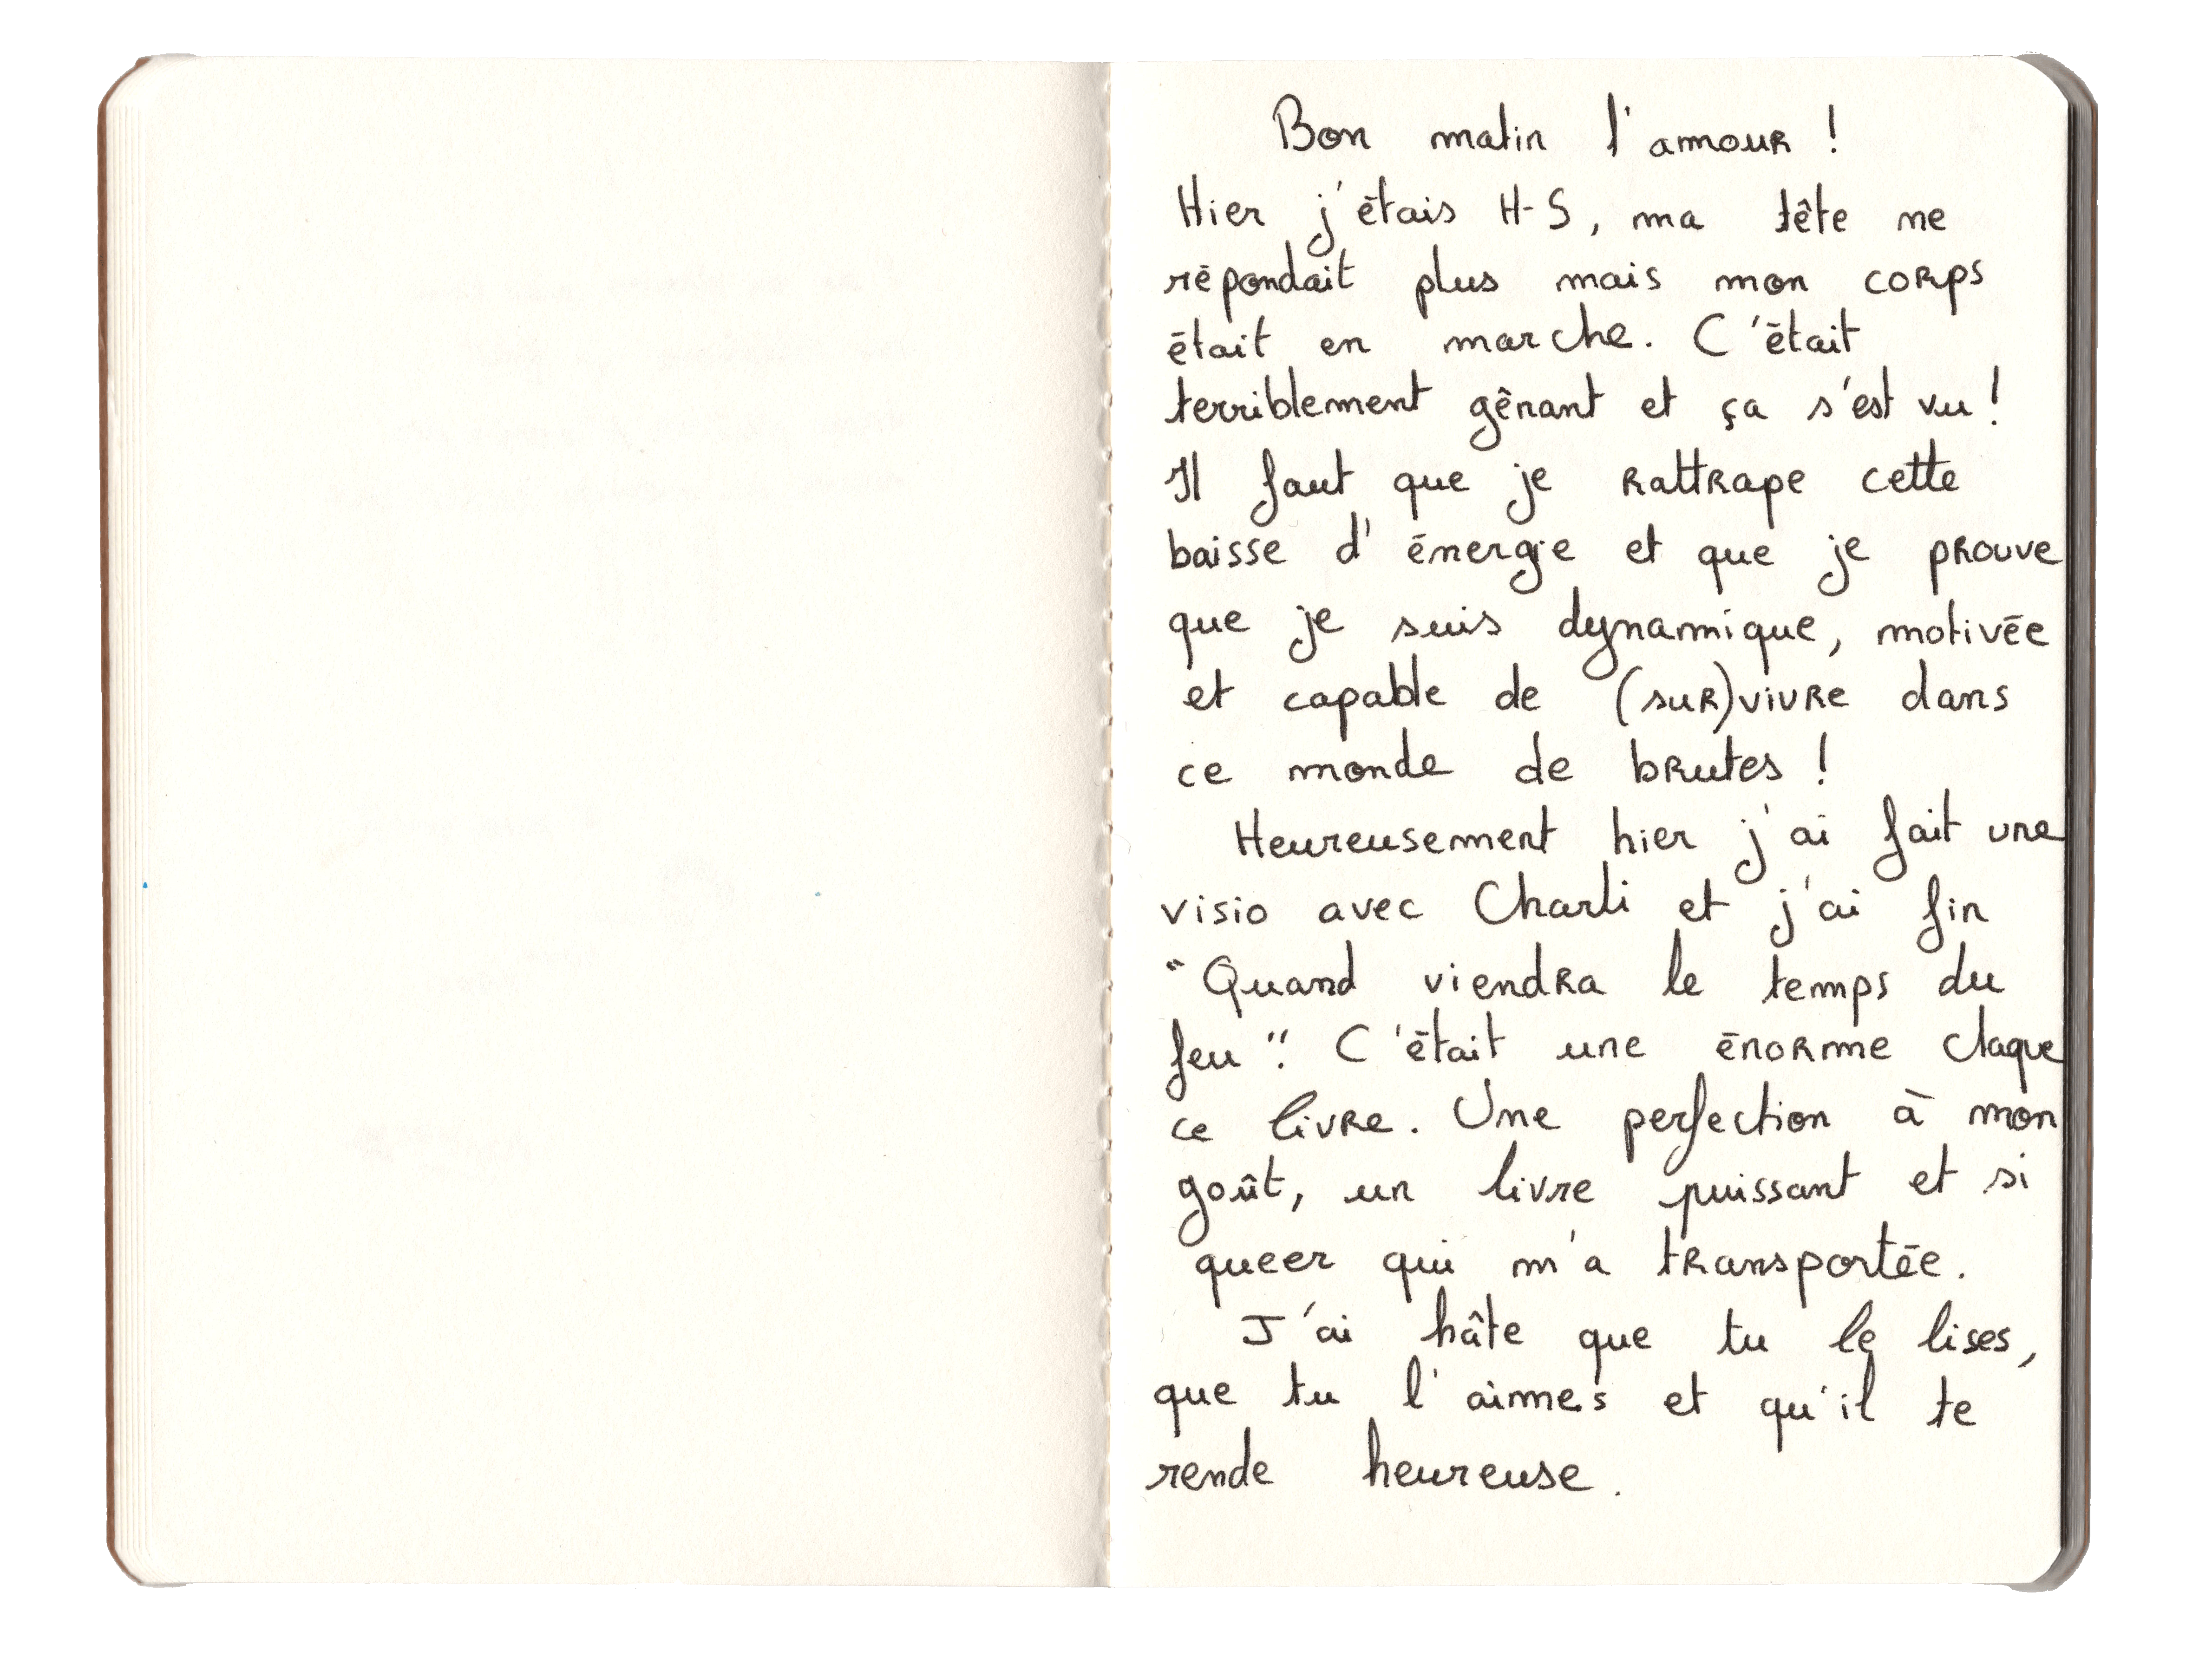 Bon matin l'amour !
Hier j'étais H-S, ma tête ne
répondait plus mais mon corps
était en marche. C'était
terriblement gênant et ça s'est vu !
Il faut que je rattrape cette
baisse d'énergie et que je prouve
que je suis dynamique, motivée
et capable de (sur)vivre dans
ce monde de brutes !
Heureusement hier j'ai fait une
visio avec Charli et j'ai fin
"Quand viendra le temps du
feu". C'était une énorme claque
ce livre. Une perfection à mon
goût, un livre puissant et si
queer qui m'a transportée.
J'ai hâte que tu le lises,
que tu l'aimes et qu'il te
rende heureuse.